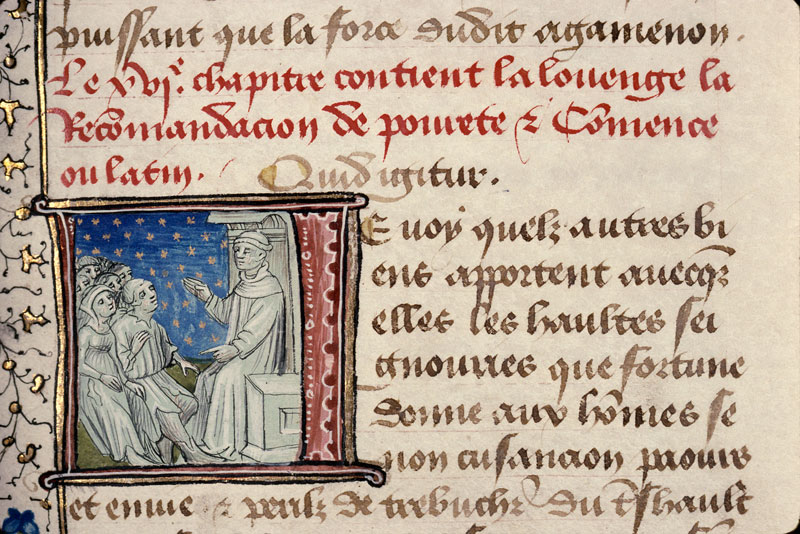 puissant que la force dudit agamenon.
Le xvi.e chapitre contient la louenge la
Recōmandacion de pourete & Cōmence
ou latin. Quid igitur.
E voy quelz autres bi
ens apportent auecq̄s
elles les haultes sei
gnouries que fortune
donne aux hōmes se
non cusancion paours
et enuie & perilz de trebuchr̄ du